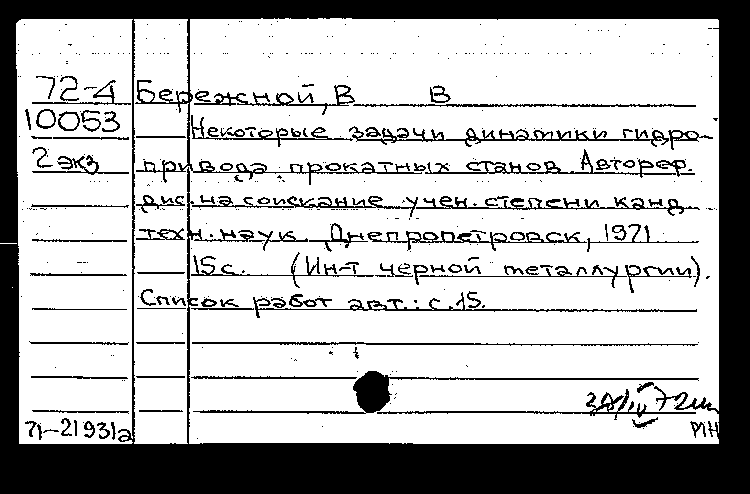 72-4 Бережной, В В
10053 Некоторые задачи динамики гидро-
2 экз привода прокатных станов. Автореф.
дис. на соискание учен. степени канд.
техн. наук. Днепропетровск, 1971
15 с. (Ин-т черной металлургии).
Список работ авт.: с. 15.
71-21931а РПН